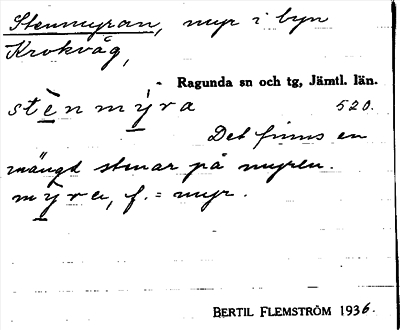 Stenmyran, myr i byn
Krokvåg,
Ragunda sn och tg, Jämtl. län.
stènmy̌ra 520.
Det finns en
mängd stenar på myren.
my̌ra, f. = myr.
BERTIL FLEMSTRÖM 1936.